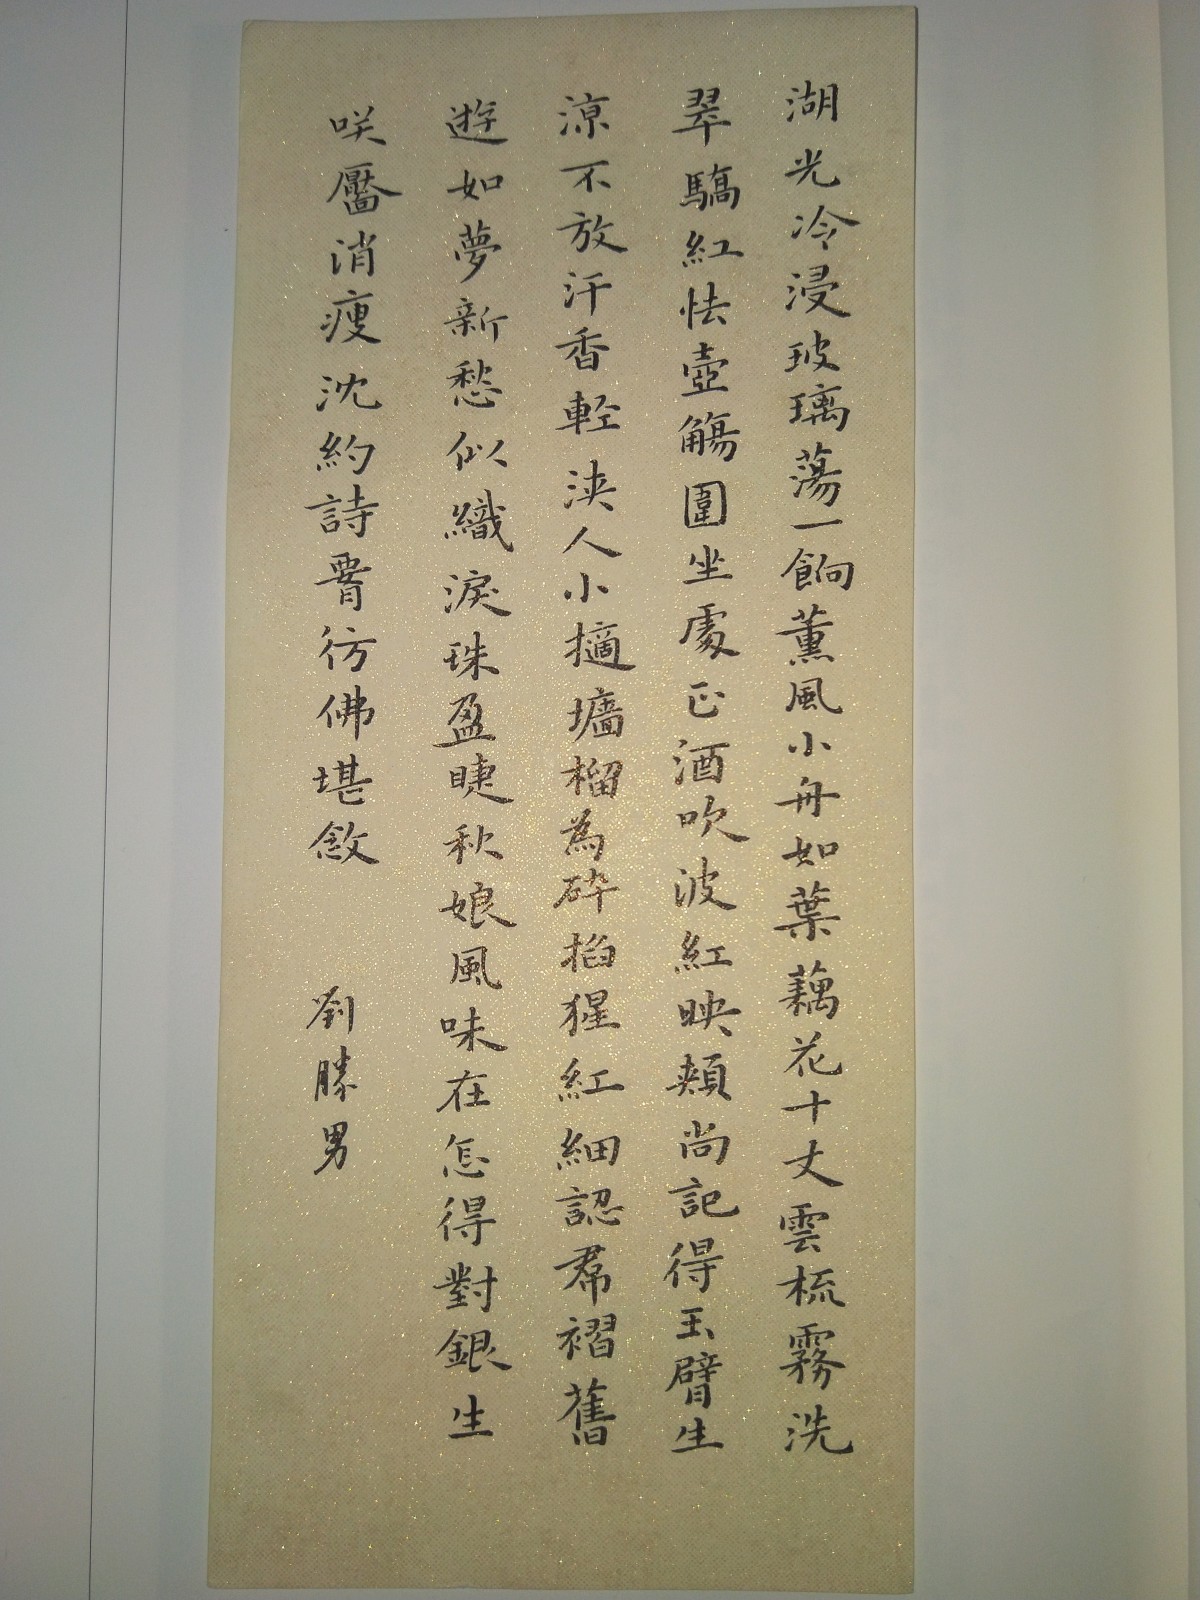 湖光冷浸玻璃蕩一餉薰風小舟如葉藕花十丈雲梳霧洗
翠驕紅怯壺觴圍坐處正酒吹波紅映頰尚記得玉臂生
涼不放汗香輕浹人小擿墻榴為碎掐猩紅細認帬褶舊
遊如夢新愁似織淚珠盈睫秋娘風味在怎得對銀生
咲靨消瘦沈約詩賮彷彿堪斂
劉勝男